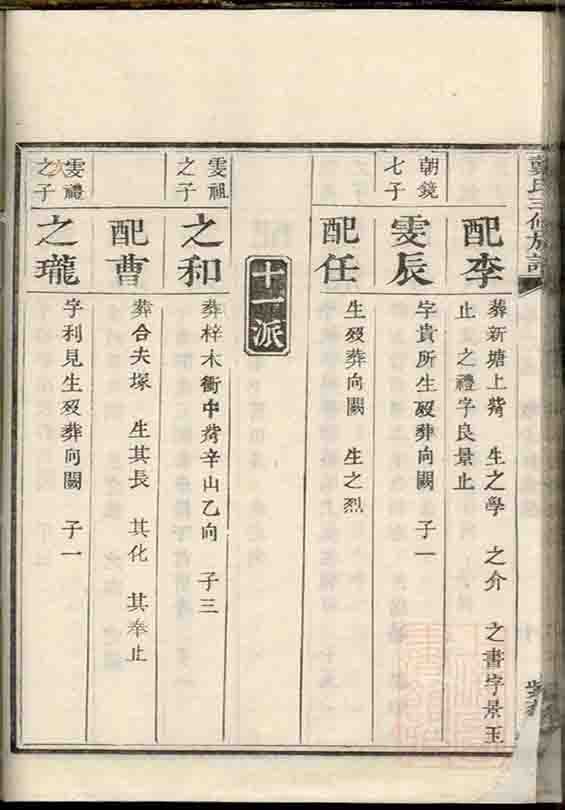 氏三修族譜
配李
葬新塘上嘴 生之學 之介 之書字景玉
止 之禮字良景止
朝鏡
七子
雯辰
字貴所生歿葬向闕 子一
配任
生歿葬向闕 生之烈
十一派
雯祖
之子
之和
葬梓木衝中嘴辛山乙向 子三
配曹
葬合夫塚 生其長 其化 其奉止
雯禮
次之子
之瓏
字利見生歿葬向闕 子一